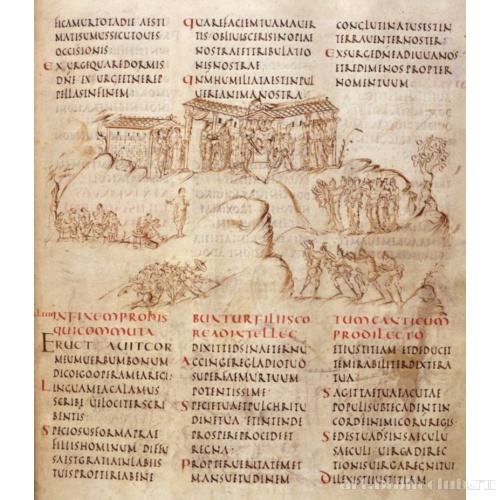 FICAMUR TOTA DIE AESTI
MATI SUMUS SICUT OUES
OCCISIONIS
EXURGE QUARE DORMIS
DNE EXURGE ET NE RE
PELLAS IN FINEM
QUARE FACIEM TUAM AUER
TIS OBLIUISCERIS INOPIAE
NOSTRAE ET TRIBULATIO
NIS NOSTRAE
QNM HUMILIATA EST IN PUL
UERE ANIMA NOSTRA
CONGLUTINATUS EST IN
TERRA UENTER NOSTER
EXSURGE DNE ADIUUA NOS
ET REDIME NOS PROPTER
NOMEN TUUM
IN FINEM PRO HIS
QUI COMMUTA
BUNTUR FILIIS CO
RE AD INTELLEC
TUM CANTICUM
PRO DILECTO
ERUCTAUIT COR
MEUM UERBUM BONUM
DICO EGO OPERA MEA REGI
LINGUA MEA CALAMUS
SCRIBE UELOCITER SCRI
BENTIS
SPECIOSUS FORMA PRAE
FILIIS HOMINUM DIFFU
SA EST GRATIA IN LABIIS
TUIS PROPTEREA BENE
DIXIT TE DS IN AETERNU
ACCINGERE GLADIO TUO
SUPER FAEMUR TUUM
POTENTISSIME
SPECIE TUA ET PULCHRITU
DINE TUA ET INTENDE
PROSPERE PROCEDE ET
REGNA
PROPTER UERITATEM ET
MANSUETUDINEM
ET IUSTITIAM ET DEDUCET
TE MIRABILITER DEXTERA
TUA
SAGITTAE TUAE ACUTAE
POPULI SUB TE CADENT IN
CORDE INIMICORU REGIS
SEDIS TUA DS IN SAECULU
SAECULI UIRGA DIREC
TIONIS UIRGA REGNI TUI
DILEXISTI IUSTITIAM